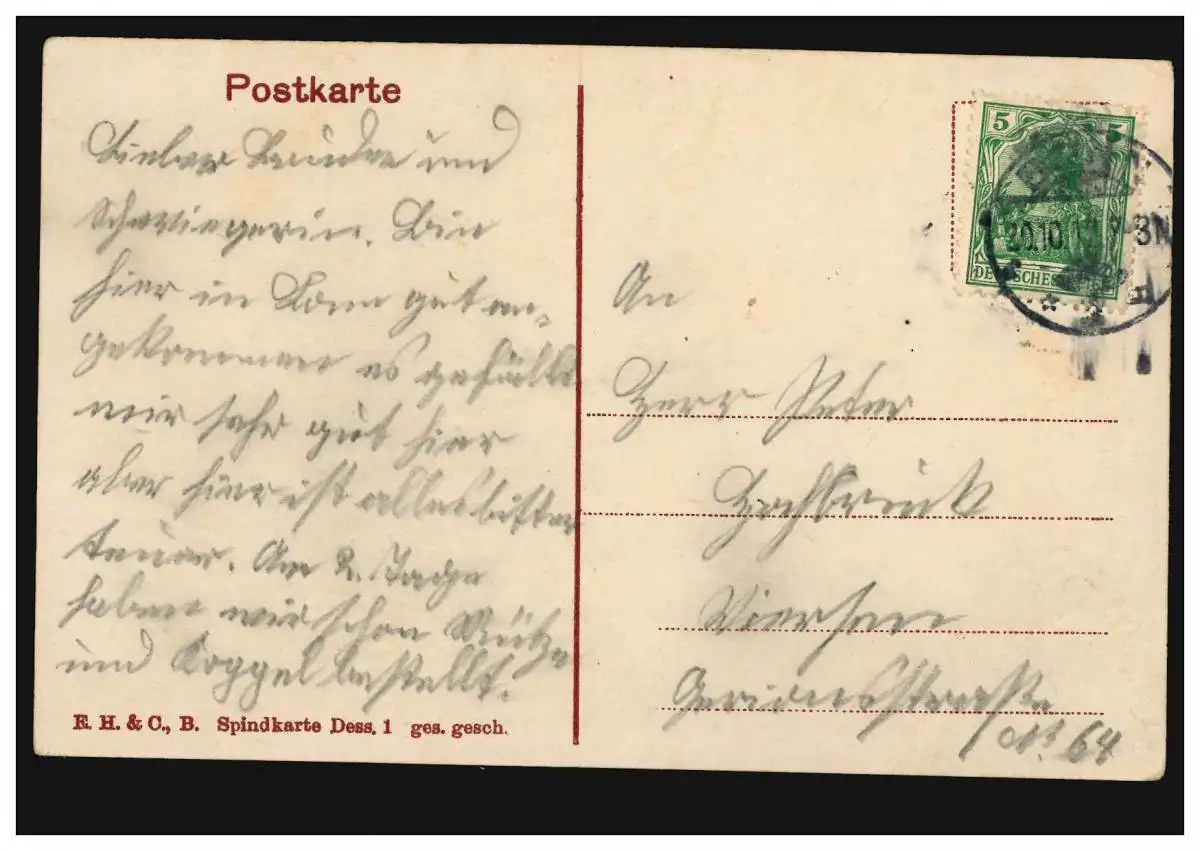 Postkarte
Lieber Bruder und
Schwiegerin. Bin
hier in Bonn gut an-
gekommen es gefällt
mir sehr gut hier
aber hier ist alles bitter
teuer. Am 2. Tage
haben wir schon Mütze
und Koppel bestellt.
E. H. & C., B. Spindkarte Dess. 1 ges. gesch.
5 5
DEUTSCHES
20.10. 3N
An
Herr Peter
Hochbruck
Viersen
Gerionsstraße
No 64